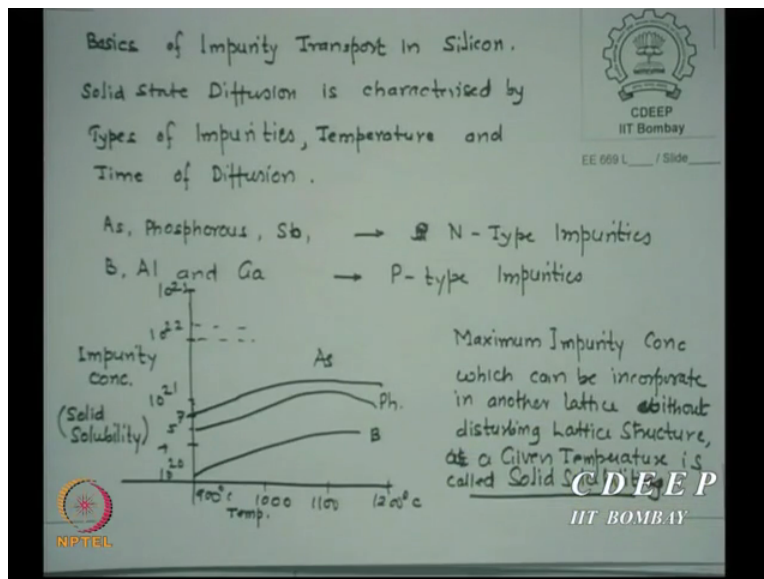 Basics of Impurity Transport in Silicon.
Solid State Diffusion is charactrised by
Types of Impurities, Temperature and
Time of Diffusion.
As, Phosphorous, Sb, → N - Type Impurities
B, Al and Ga → P- type Impurities
CDEEP
IIT Bombay
EE 669 L___ / Slide____
10²²
10²¹
10²⁰
Impurity
Conc.
(Solid
Solubility)
7
5
As
Ph.
B
900°c 1000 1100 1200°c
Temp.
Maximum Impurity Conc
which can be incorporate
in another lattice without
disturbing Lattice Structure,
at a Given Temperature is
called Solid Solubility
CDEEP
IIT BOMBAY
NPTEL